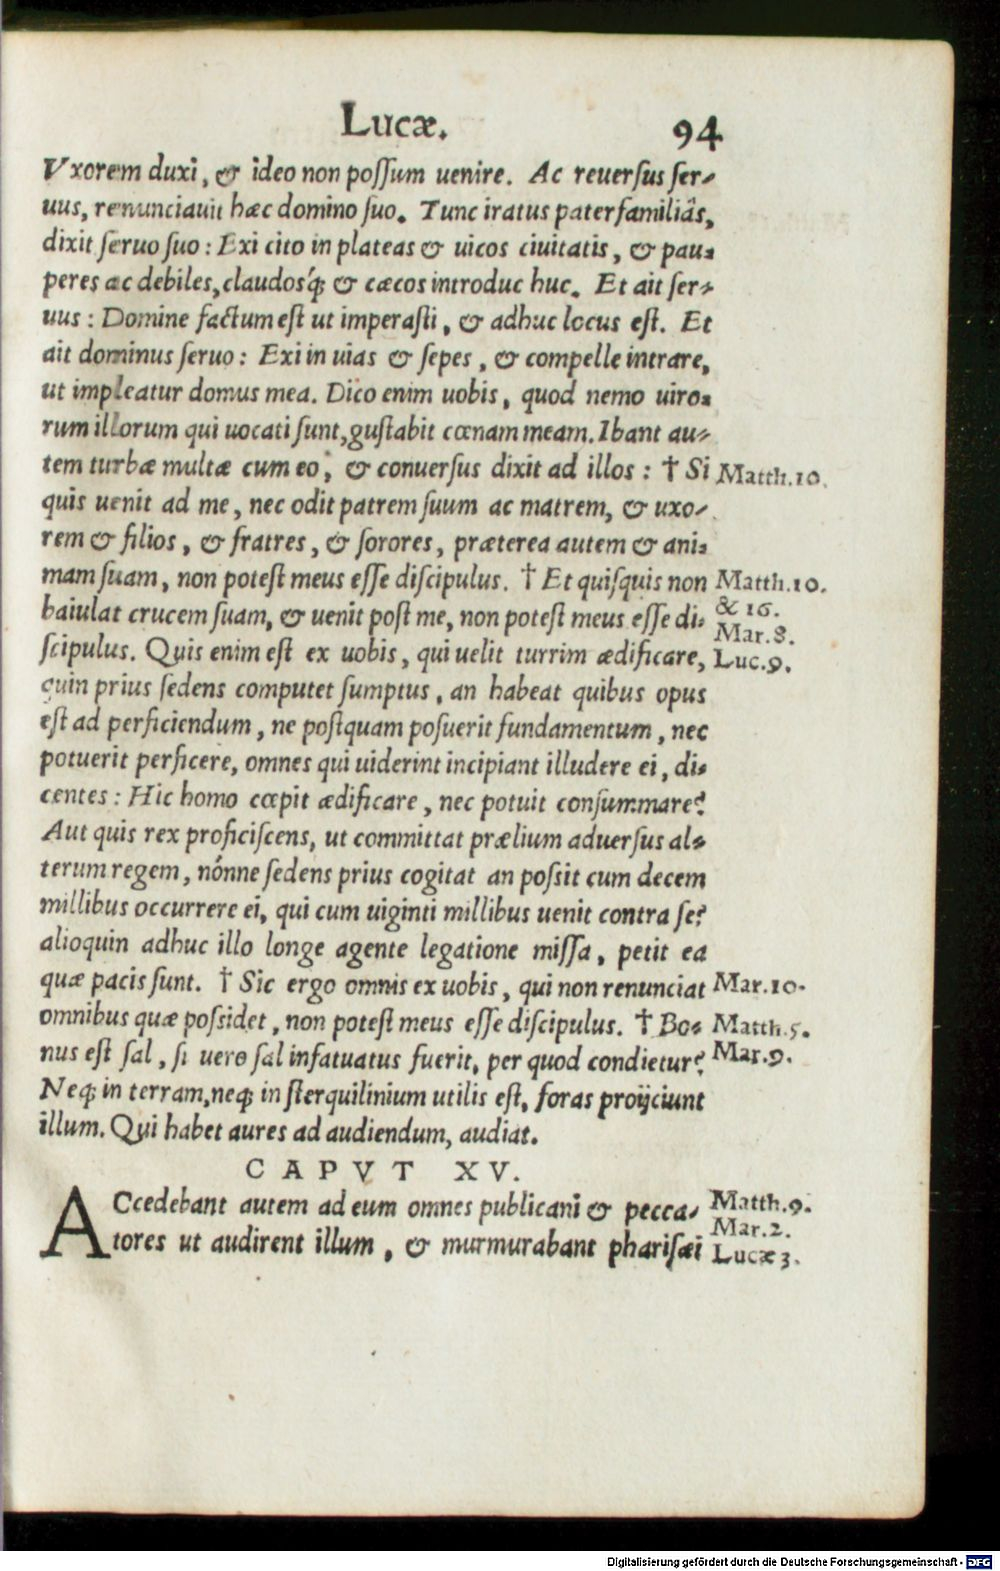 Lucæ. 94
Vxorem duxi, & ideo non possum uenire. Ac reuersus ser-
uus, renunciauit hæc domino suo. Tunc iratus paterfamiliâs,
dixit seruo suo: Exi cito in plateas & uicos ciuitatis, & pau-
peres ac debiles, claudosq́; & cæcos introduc huc. Et ait ser-
uus: Domine factum est ut imperasti, & adhuc locus est. Et
ait dominus seruo: Exi in uias & sepes, & compelle intrare,
ut impleatur domus mea. Dico enim uobis, quod nemo uiro-
rum illorum qui uocati sunt, gustabit cœnam meam. Ibant au-
tem turbæ multæ cum eo, & conuersus dixit ad illos: † Si Matth.10.
quis uenit ad me, nec odit patrem suum ac matrem, & uxo-
rem & filios, & fratres, & sorores, præterea autem & ani-
mam suam, non potest meus esse discipulus. † Et quisquis non Matth.10.
baiulat crucem suam, & uenit post me, non potest meus esse di- & 16.
Mar.8.
scipulus. Quis enim est ex uobis, qui uelit turrim ædificare, Luc.9.
quin prius sedens computet sumptus, an habeat quibus opus
est ad perficiendum, ne postquam posuerit fundamentum, nec
potuerit perficere, omnes qui uiderint incipiant illudere ei, di-
centes: Hic homo cœpit ædificare, nec potuit consummare?
Aut quis rex proficiscens, ut committat prælium aduersus al-
terum regem, nónne sedens prius cogitat an possit cum decem
millibus occurrere ei, qui cum uiginti millibus uenit contra se?
alioquin adhuc illo longe agente legatione missa, petit ea
quæ pacis sunt. † Sic ergo omnis ex uobis, qui non renunciat Mar.10.
omnibus quæ possidet, non potest meus esse discipulus. † Bo- Matth.5.
nus est sal, si uero sal infatuatus fuerit, per quod condietur? Mar.9.
Neq; in terram, neq; in sterquilinium utilis est, foras proijciunt
illum. Qui habet aures ad audiendum, audiat.
CAPVT XV.
ACcedebant autem ad eum omnes publicani & pecca- Matth.9.
Mar.2.
tores ut audirent illum, & murmurabant pharisæi Lucæ 3.
Digitalisierung gefördert durch die Deutsche Forschungsgemeinschaft - DFG